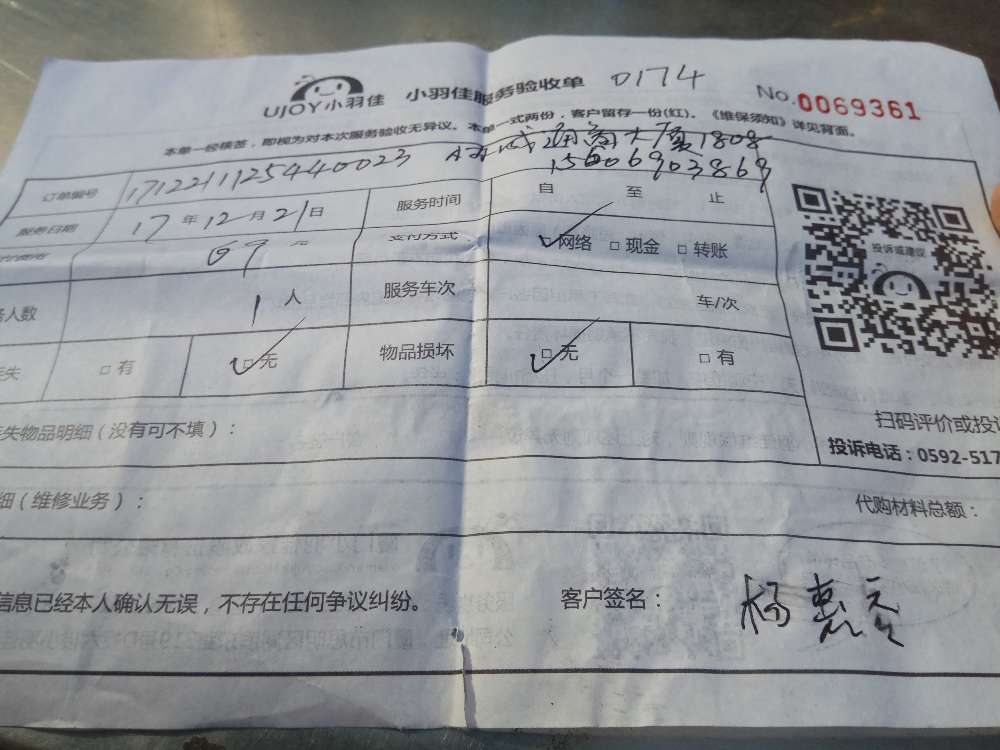 UJOY小羽佳 小羽佳服务验收单 0174 No.0069361
本单一经核签，即视为对本次服务验收无异议。本单一式两份，客户留存一份(红)。《维保须知》详见背面。
订单编号 1712211125440023 通商大厦1808
15606903869
服务日期 17年12月21日 服务时间 自 至 止
69元 支付方式 ☑网络 □现金 □转账
人数 1人 服务车次 车/次
失 □有 ☑无 物品损坏 ☑无 □有
投诉或建议
失物品明细（没有可不填）：
扫码评价或投诉
投诉电话：0592-517
细（维修业务）： 代购材料总额：
信息已经本人确认无误，不存在任何争议纠纷。 客户签名： 杨惠